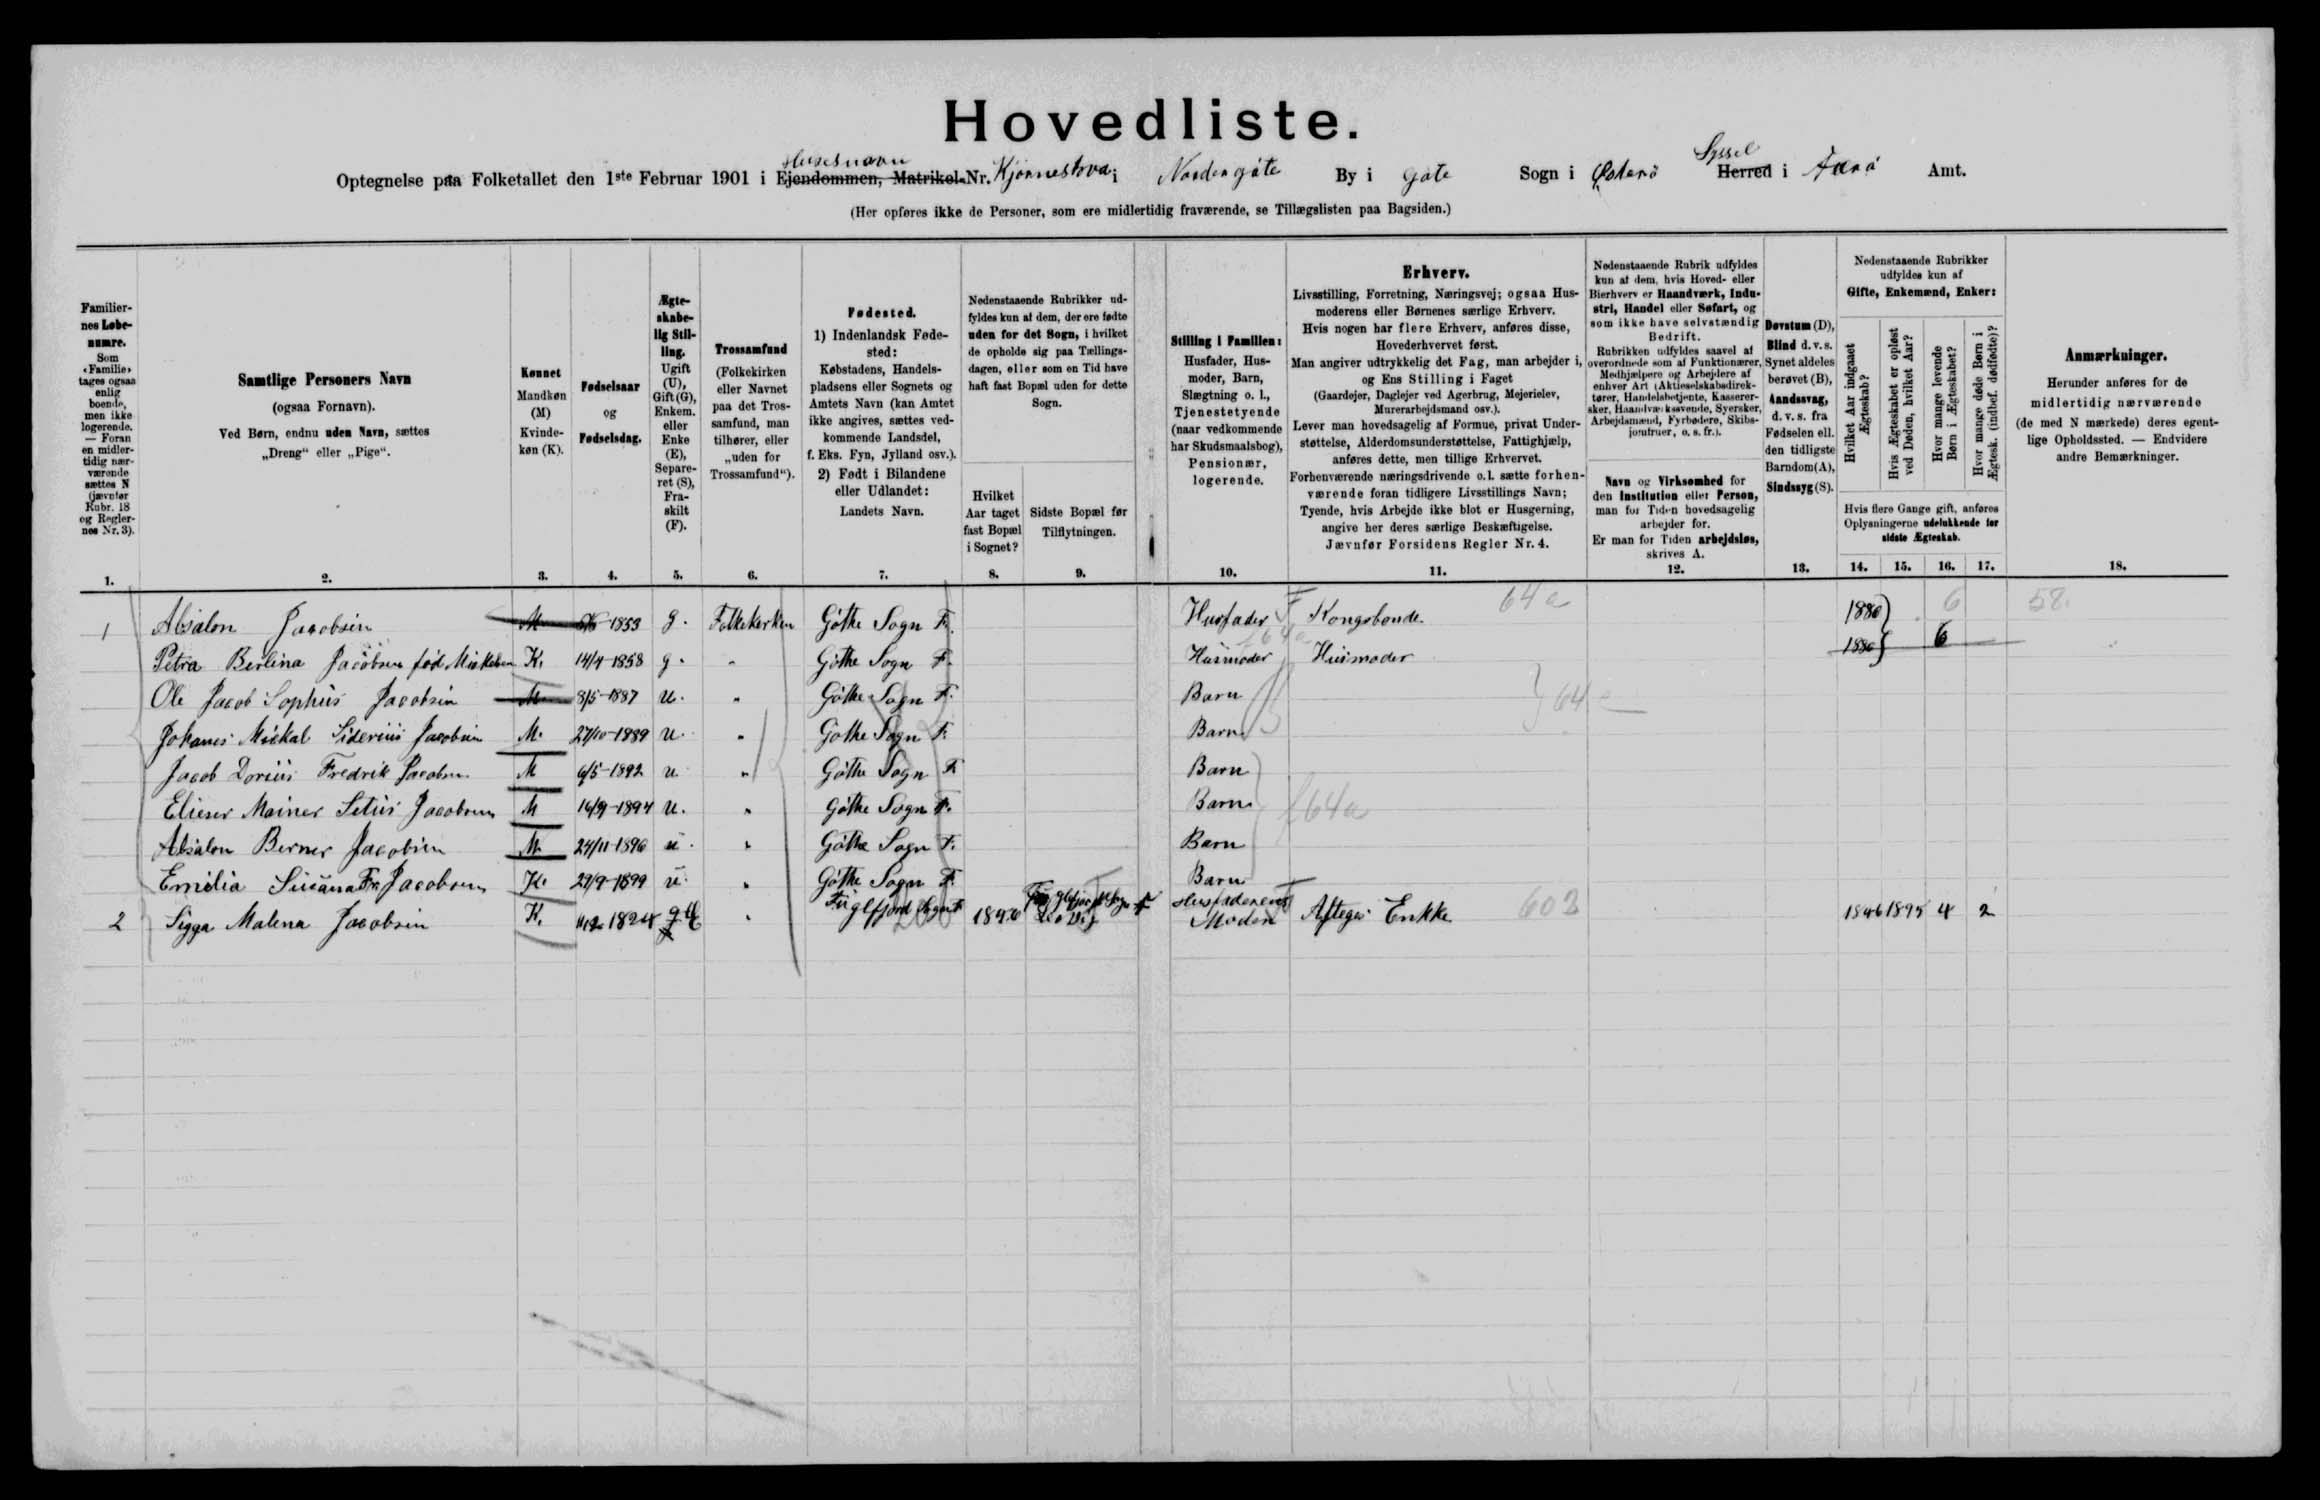 Hovedliste.
Husesnavn
Syssel
Optegnelse paa Folketallet den 1ste Februar 1901 i Ejendommen, Matrikel-Nr. Kjønnestova i Nordengøte By i Gøte Sogn i Østerø Herred i Færø Amt.
(Her opføres ikke de Personer, som ere midlertidig fraværende, se Tillægslisten paa Bagsiden.)
Familier-
nes Løbe-
numre.
Som
«Familie»
tages ogsaa
enlig
boende,
men ikke
logerende.
— Foran
en midler-
tidig nær-
værende
sættes N
(jævnfør
Rubr. 18
og Regler-
nes Nr. 3).
1.
Samtlige Personers Navn
(ogsaa Fornavn).
Ved Børn, endnu uden Navn, sættes
„Dreng“ eller „Pige“.
2.
Kønnet
Mandkøn
(M)
Kvinde-
køn (K).
3.
Fødselsaar
og
Fødselsdag.
4.
Ægte-
skabe-
lig Stil-
ling.
Ugift
(U),
Gift (G),
Enkem.
eller
Enke
(E),
Separe-
ret (S),
Fra-
skilt
(F).
5.
Trossamfund
(Folkekirken
eller Navnet
paa det Tros-
samfund, man
tilhører, eller
„uden for
Trossamfund“).
6.
Fødested.
1) Indenlandsk Føde-
sted:
Købstadens, Handels-
pladsens eller Sognets og
Amtets Navn (kan Amtet
ikke angives, sættes ved-
kommende Landsdel,
f. Eks. Fyn, Jylland osv.).
2) Født i Bilandene
eller Udlandet:
Landets Navn.
7.
Nedenstaaende Rubrikker ud-
fyldes kun af dem, der ere fødte
uden for det Sogn, i hvilket
de opholde sig paa Tællings-
dagen, eller som en Tid have
haft fast Bopæl uden for dette
Sogn.
Hvilket
Aar taget
fast Bopæl
i Sognet?
8.
Sidste Bopæl før
Tilflytningen.
9.
Stilling i Familien:
Husfader, Hus-
moder, Barn,
Slægtning o. l.,
Tjenestetyende
(naar vedkommende
har Skudsmaalsbog),
Pensionær,
logerende.
10.
Erhverv.
Livsstilling, Forretning, Næringsvej; ogsaa Hus-
moderens eller Børnenes særlige Erhverv.
Hvis nogen har flere Erhverv, anføres disse,
Hovederhvervet først.
Man angiver udtrykkelig det Fag, man arbejder i,
og Ens Stilling i Faget
(Gaardejer, Daglejer ved Agerbrug, Mejerielev,
Murerarbejdsmand osv.).
Lever man hovedsagelig af Formue, privat Under-
støttelse, Alderdomsunderstøttelse, Fattighjælp,
anføres dette, men tillige Erhvervet.
Forhenværende næringsdrivende o. l. sætte forhen-
værende foran tidligere Livsstillings Navn;
Tyende, hvis Arbejde ikke blot er Husgerning,
angive her deres særlige Beskæftigelse.
Jævnfør Forsidens Regler Nr. 4.
11.
Nedenstaaende Rubrik udfyldes
kun af dem, hvis Hoved- eller
Bierhverv er Haandværk, Indu-
stri, Handel eller Søfart, og
som ikke have selvstændig
Bedrift.
Rubrikken udfyldes saavel af
overordnede som af Funktionærer,
Medhjælpere og Arbejdere af
enhver Art (Aktieselskabsdirek-
tører, Handelsbetjente, Kasserer-
sker, Haandværkssvende, Syersker,
Arbejdsmænd, Fyrbødere, Skibs-
jomfruer, o. s. fr.).
Navn og Virksomhed for
den Institution eller Person,
man for Tiden hovedsagelig
arbejder for.
Er man for Tiden arbejdsløs,
skrives A.
12.
Døvstum (D),
Blind d. v. s.
Synet aldeles
berøvet (B),
Aandssvag,
d. v. s. fra
Fødselen ell.
den tidligste
Barndom (A),
Sindssyg (S).
13.
Nedenstaaende Rubrikker
udfyldes kun af
Gifte, Enkemænd, Enker:
Hvilket Aar indgaaet
Ægteskab?
Hvis Ægteskabet er opløst
ved Døden, hvilket Aar?
Hvor mange levende
Børn i Ægteskabet?
Hvor mange døde Børn i
Ægtesk. (indbef. dødfødte)?
Hvis flere Gange gift, anføres
Oplysningerne udelukkende for
sidste Ægteskab.
14. 15. 16. 17.
Anmærkninger.
Herunder anføres for de
midlertidig nærværende
(de med N mærkede) deres egent-
lige Opholdssted. — Endvidere
andre Bemærkninger.
18.
1 Absalon Jacobsen M 1853 g. Folkekirken Gøthe Sogn F. Husfader F Kongsbonde 64a 1880 6 58.
Petra Berlina Jacobsen fød Mikkelsen K. 14/4-1858 g. " Gøthe Sogn F. Husmoder Husmoder 1880 6
Ole Jacob Sophus Jacobsen M 8/5-1887 u. " Gøthe Sogn F. Barn 64a
Johanes Mickal Siderius Jacobsen M. 27/10-1889 u. " Gøthe Sogn F. Barn
Jacob Dorius Fredrik Jacobsen M 6/5-1892 u " Gøthe Sogn F Barn
Elieser Mainer Setius Jacobsen M 16/9-1894 u. " Gøthe Sogn F. Barn 64a
Absalon Berner Jacobsen M. 24/11-1896 u. " Gøthe Sogn F. Barn
Emilia Susana Fr. Jacobsen K. 29/9-1899 u. " Gøthe Sogn F. Barn
2 Sigga Malena Jacobsen K. 1824 g E " Fuglfjord Sogn F 1846 Fuglfjord Sogn F Husfaderens Moder Aftægts Enkke 603 1846 1895 4 2